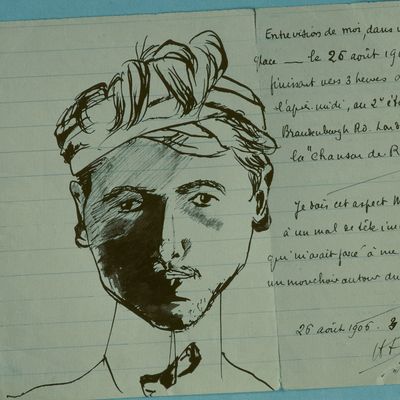 Entrevision de moi, dans u
glace — le 26 août 190
finissant vers 3 heures d
l'après-midi, au 2e ét
Brandenburgh Rd. Lond
la "Chanson de R
Je dois cet aspect M
à un mal de tête in
qui m'avait forcé à me
un mouchoir autour du
26 août 1906. 3